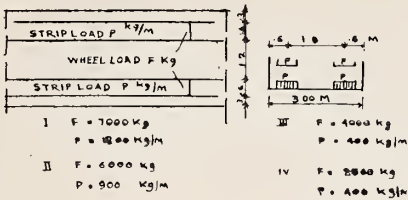 STRIP LOAD P kg/m
WHEEL LOAD F Kg
STRIP LOAD P kg/m
.6 1.8 .6 M
P P
P P
3.00 M
I F = 7000 Kg
II F = 6000 Kg
P = 900 Kg/m
III F = 4000 Kg
P = 400 Kg/m
IV
P = 400 Kg/m